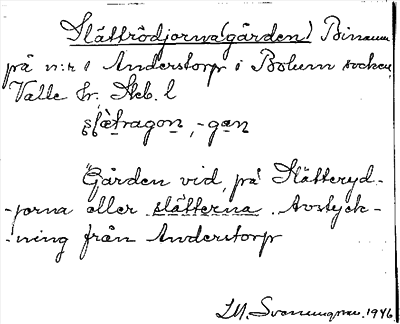 Slättrödjorna(gården) Binamn
på n:r 1 Anderstorp i Bolum socken
Valle hr. Skb. l
-gan
Gården vid, på Slätteryd-
-jorna eller slätterna. Avstyck-
-ning från Anderstorp
1946